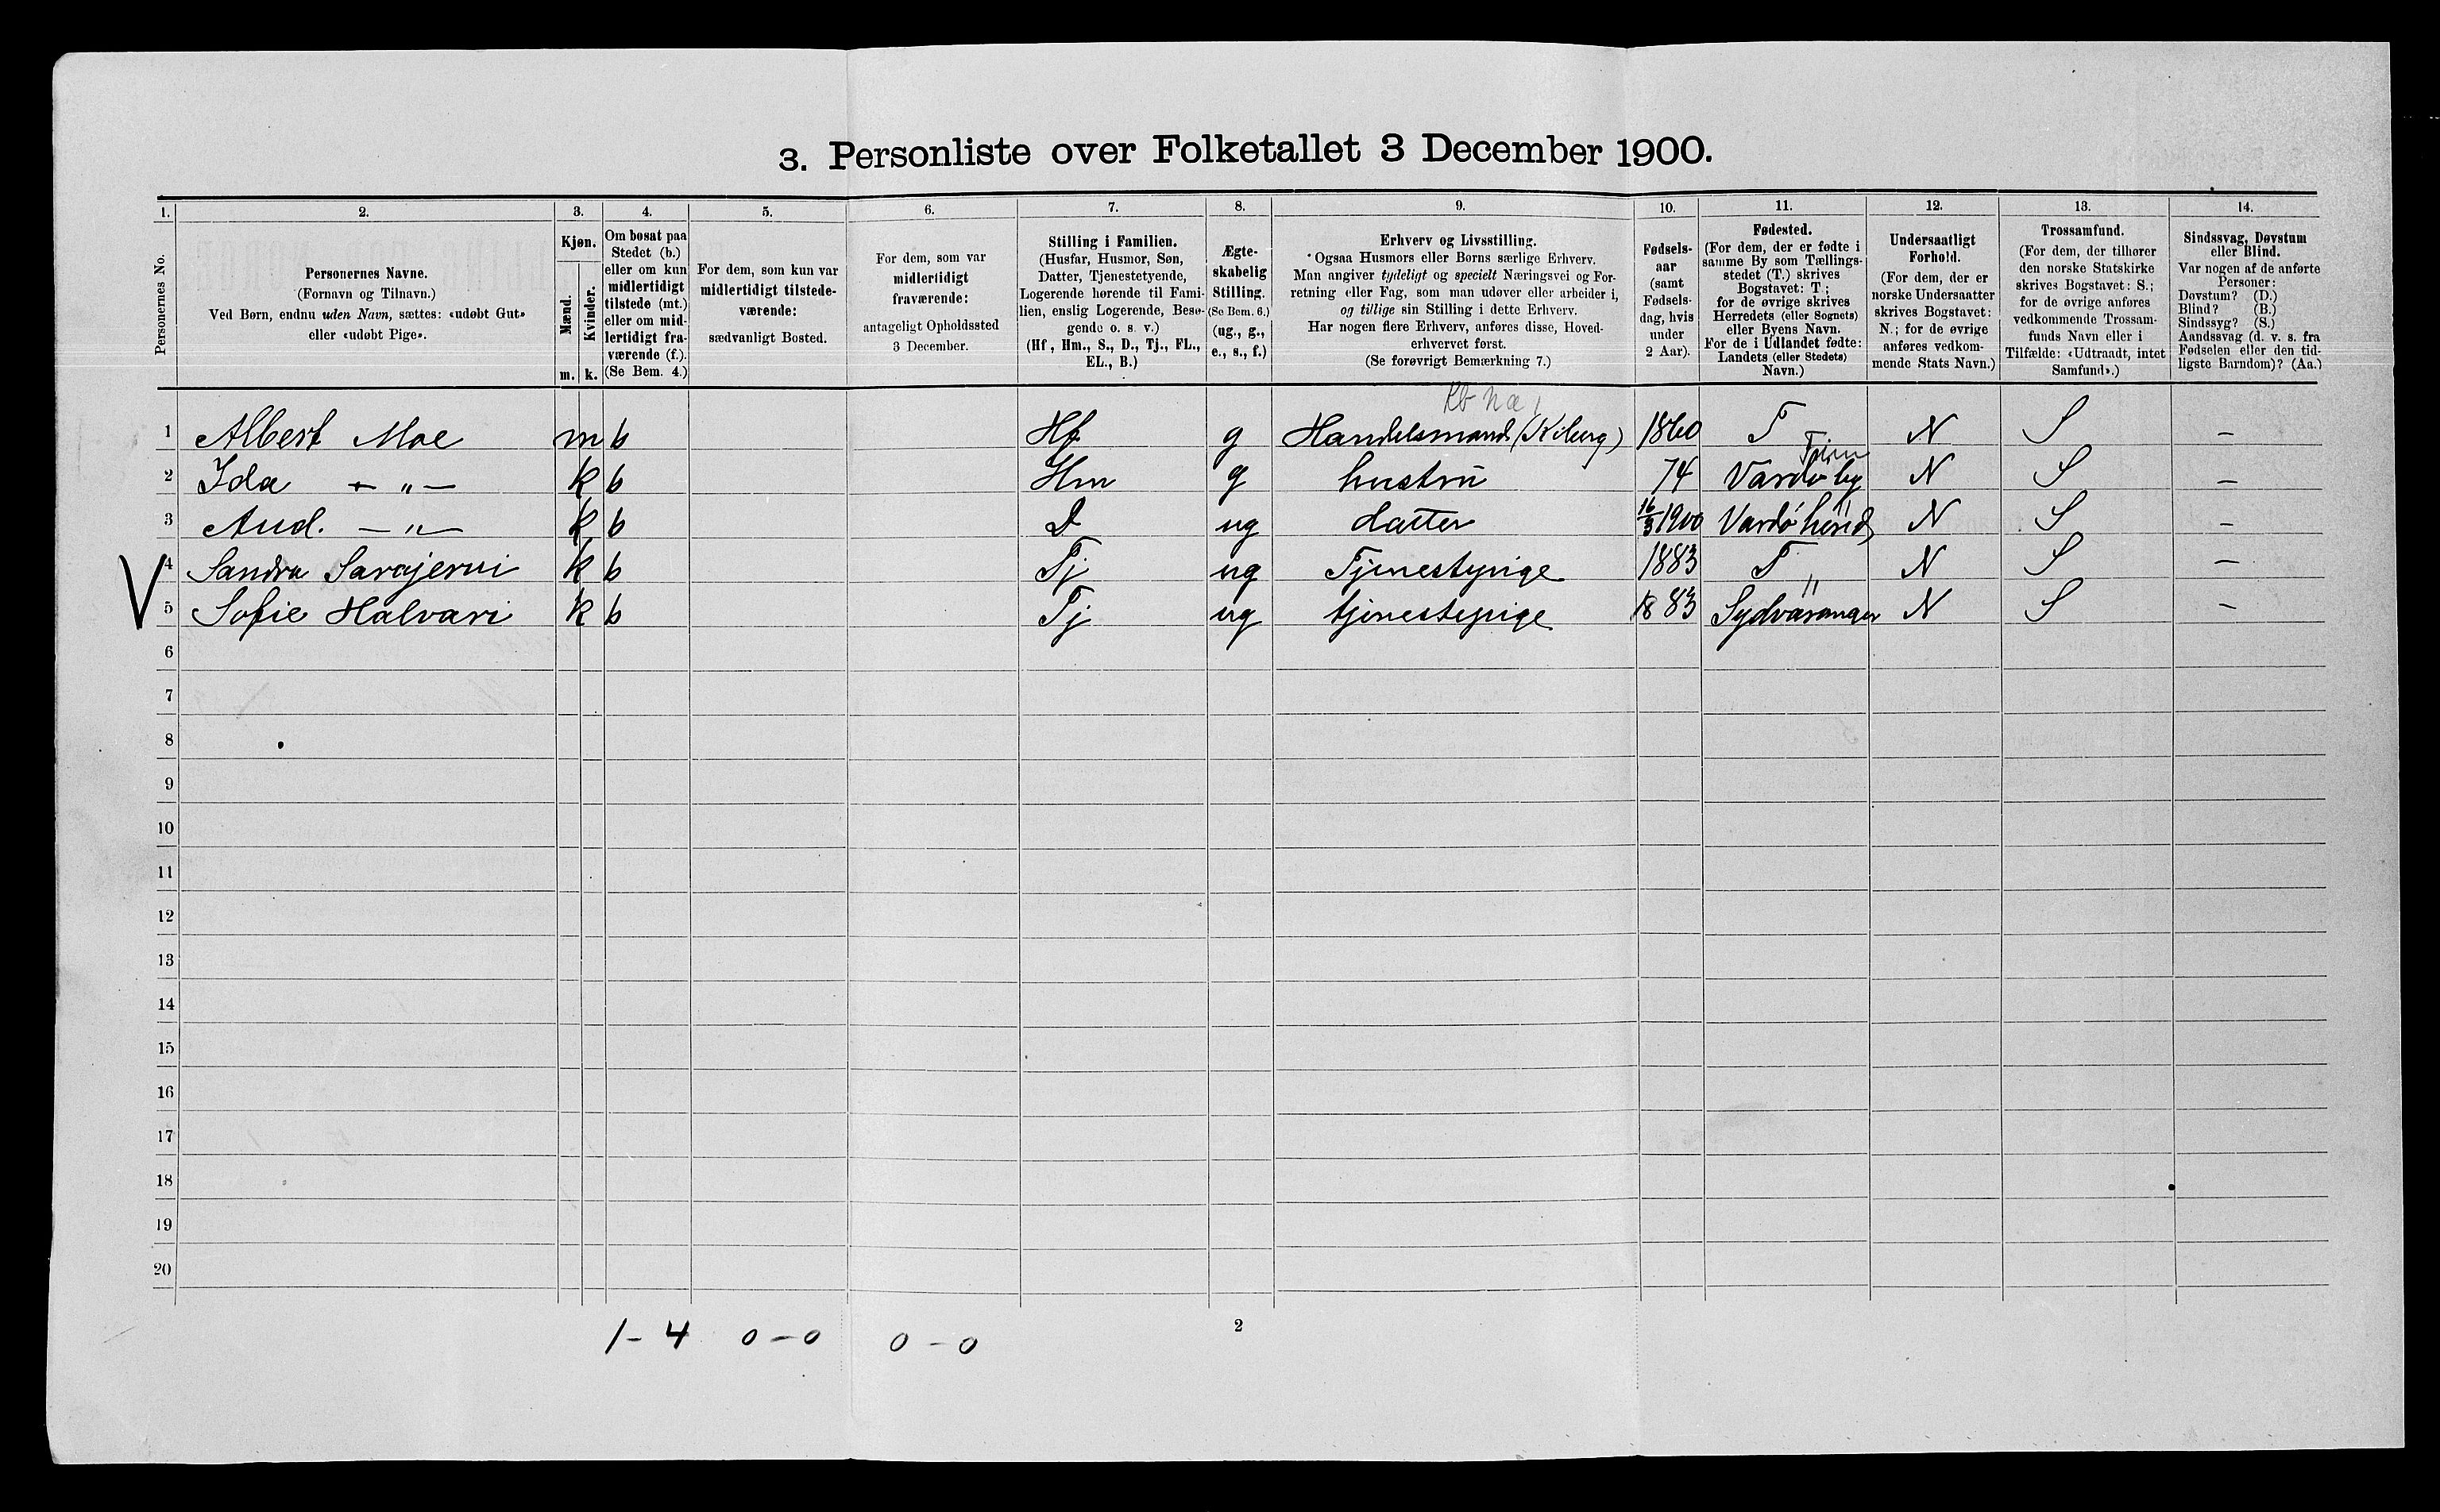 3. Personliste over Folketallet 3 December 1900.
1. 2. 3. 4. 5. 6. 7. 8. 9. 10. 11. 12. 13. 14.
Personernes No.
Personernes Navne.
(Fornavn og Tilnavn.)
Ved Børn, endnu uden Navn, sættes: «udøbt Gut»
eller «udøbt Pige».
Kjøn.
Mænd.
Kvinder.
m. k.
Om bosat paa
Stedet (b.)
eller om kun
midlertidigt
tilstede (mt.)
eller om mid-
lertidigt fra-
værende (f.).
(Se Bem. 4.)
For dem, som kun var
midlertidigt tilstede-
værende:
sædvanligt Bosted.
For dem, som var
midlertidigt
fraværende:
antageligt Opholdssted
3 December.
Stilling i Familien.
(Husfar, Husmor, Søn,
Datter, Tjenestetyende,
Logerende hørende til Fami-
lien, enslig Logerende, Besø-
gende o. s. v.)
(Hf, Hm., S., D., Tj., FL.,
EL., B.)
Ægte-
skabelig
Stilling.
(Se Bem. 6.)
(ug., g.,
e., s., f.)
Erhverv og Livsstilling.
Ogsaa Husmors eller Børns særlige Erhverv.
Man angiver tydeligt og specielt Næringsvei og For-
retning eller Fag, som man udøver eller arbeider i,
og tillige sin Stilling i dette Erhverv.
Har nogen flere Erhverv, anføres disse, Hoved-
erhvervet først.
(Se forøvrigt Bemærkning 7.)
Fødsels-
aar
(samt
Fødsels-
dag, hvis
under
2 Aar).
Fødested.
(For dem, der er fødte i
samme By som Tællings-
stedet (T.) skrives
Bogstavet: T;
for de øvrige skrives
Herredets (eller Sognets)
eller Byens Navn.
For de i Udlandet fødte:
Landets (eller Stedets)
Navn.)
Undersaatligt
Forhold.
(For dem, der er
norske Undersaatter
skrives Bogstavet:
N.; for de øvrige
anføres vedkom-
mende Stats Navn.)
Trossamfund.
(For dem, der tilhører
den norske Statskirke
skrives Bogstavet: S.;
for de øvrige anføres
vedkommende Trossam-
funds Navn eller i
Tilfælde: «Udtraadt, intet
Samfund».)
Sindssvag, Døvstum
eller Blind.
Var nogen af de anførte
Personer:
Døvstum? (D.)
Blind? (B.)
Sindssyg? (S.)
Aandssvag (d. v. s. fra
Fødselen eller den tid-
ligste Barndom)? (Aa.)
1 Albert Moe m b Hf g Handelsmand (Kiberg) 1860 T N S —
2 Ida — „ — k b Hm g hustru 74 Vardø by N S —
3 Aud. — „ — k b D ug datter 16/3 1900 Vardø herred N S —
V 4 Sandra Sarajervi k b Tj ug Tjenestepige 1883 T N S —
5 Sofie Halvari k b Tj ug tjenestepige 1883 Sydvaranger N S —
6
7
8
9
10
11
12
13
14
15
16
17
18
19
20
1 - 4 0 - 0 0 - 0
2